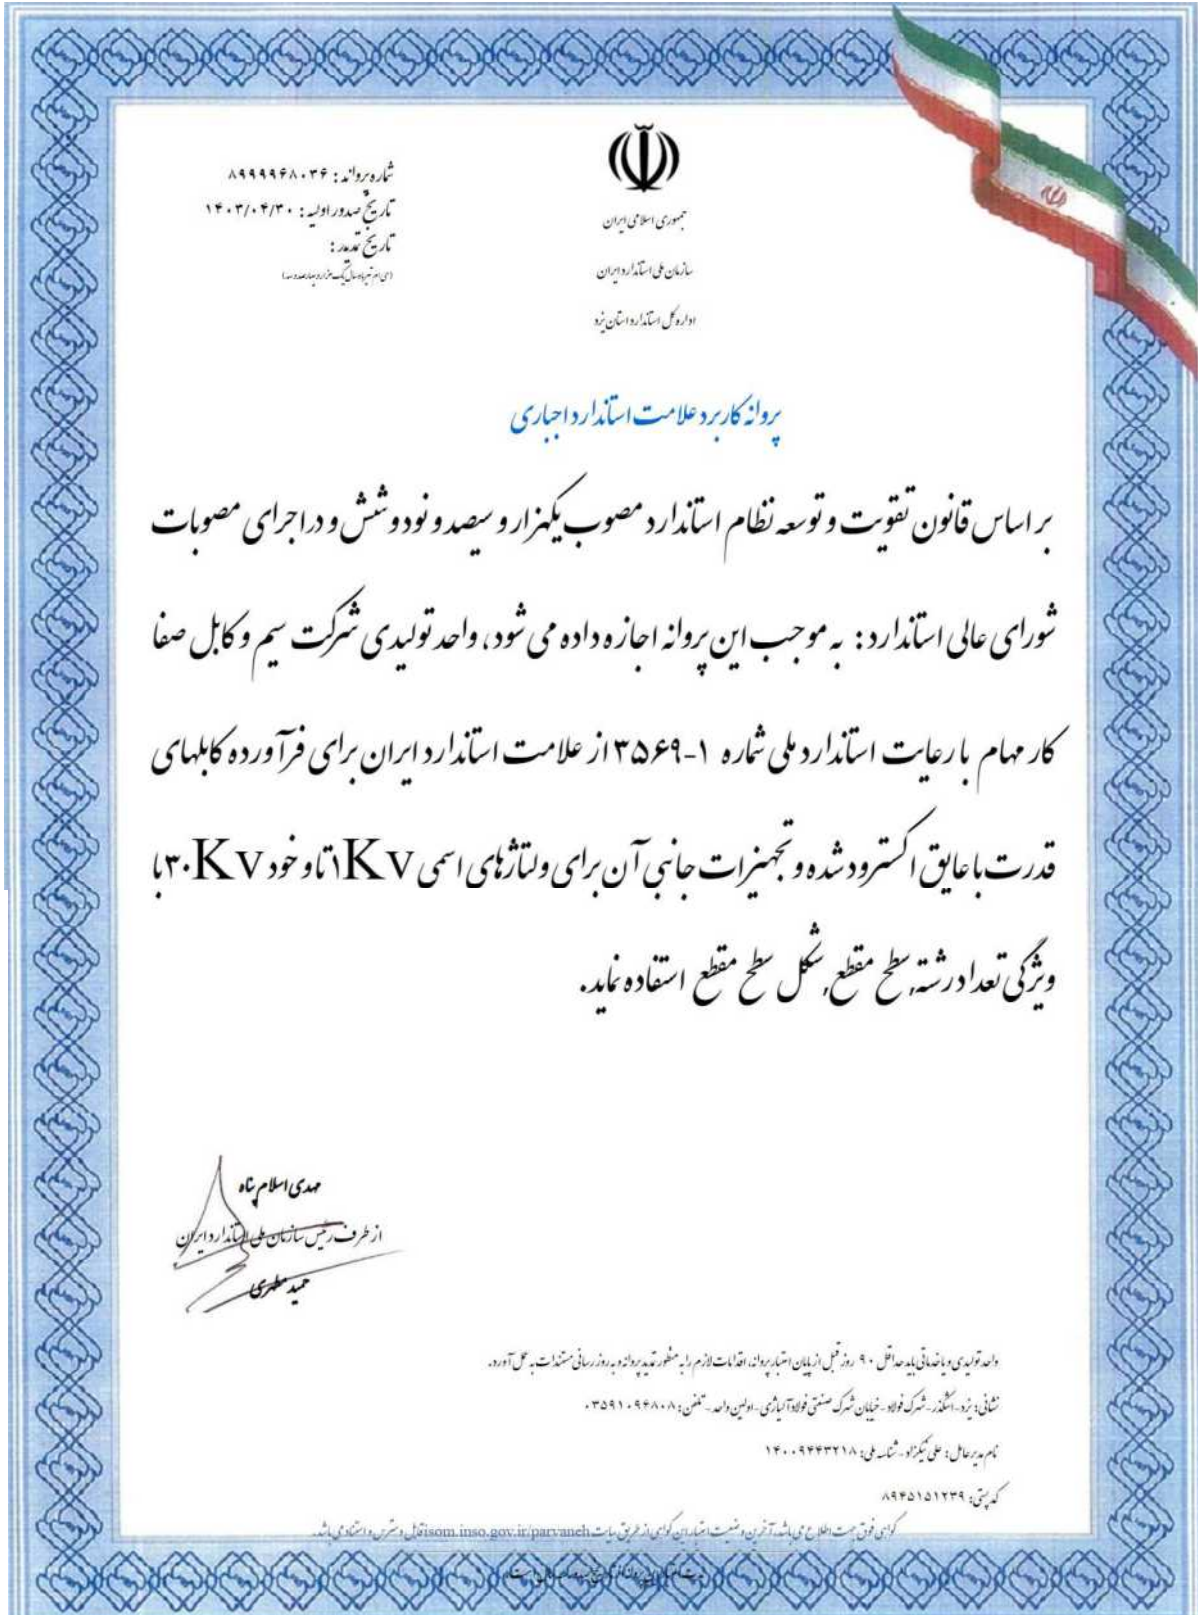 جمهوری اسلامی ایران
سازمان ملی استاندارد ایران
اداره کل استاندارد استان یزد
شماره پروانه : ۸۹۹۹۹۶۸۰۳۶
تاریخ صدور اولیه : ۱۴۰۳/۰۴/۳۰
تاریخ تمدید :
(سی ام تیرماه سال یک هزار و چهارصد و سه)
پروانه کاربرد علامت استاندارد اجباری
بر اساس قانون تقویت و توسعه نظام استاندارد مصوب یکهزار و سیصد و نود و شش و در اجرای مصوبات
شورای عالی استاندارد : به موجب این پروانه اجازه داده می شود، واحد تولیدی شرکت سیم و کابل صفا
کار مهام با رعایت استاندارد ملی شماره ۱-۳۵۶۹ از علامت استاندارد ایران برای فرآورده کابلهای
قدرت با عایق اکسترود شده و تجهیزات جانبی آن برای ولتاژهای اسمی ۱Kv تا و خود ۳۰Kv با
ویژگی تعداد رشته, سطح مقطع, شکل سطح مقطع استفاده نماید.
مهدی اسلام پناه
از طرف رئیس سازمان ملی استاندارد ایران
حمید مطهری
واحد تولیدی و یا خدماتی باید حداقل ۹۰ روز قبل از پایان اعتبار پروانه، اقدامات لازم را به منظور تمدید پروانه و به روز رسانی مستندات به عمل آورد.
نشانی: یزد - اشکذر - شهرک فولاد - خیابان شهرک صنعتی فولاد آلیاژی - اولین واحد - تلفن: ۰۳۵۹۱۰۹۴۸۰۸
نام مدیرعامل: علی نیکزاد - شناسه ملی: ۱۴۰۰۹۴۴۳۲۱۸
کد پستی: ۸۹۴۵۱۵۱۲۳۹
گواهی فوق جهت اطلاع می باشد، آخرین وضعیت اعتبار این گواهی از طریق سایت isom.inso.gov.ir/parvaneh قابل دسترس و استناد می باشد.
مدت اعتبار این پروانه از تاریخ صدور سال است.